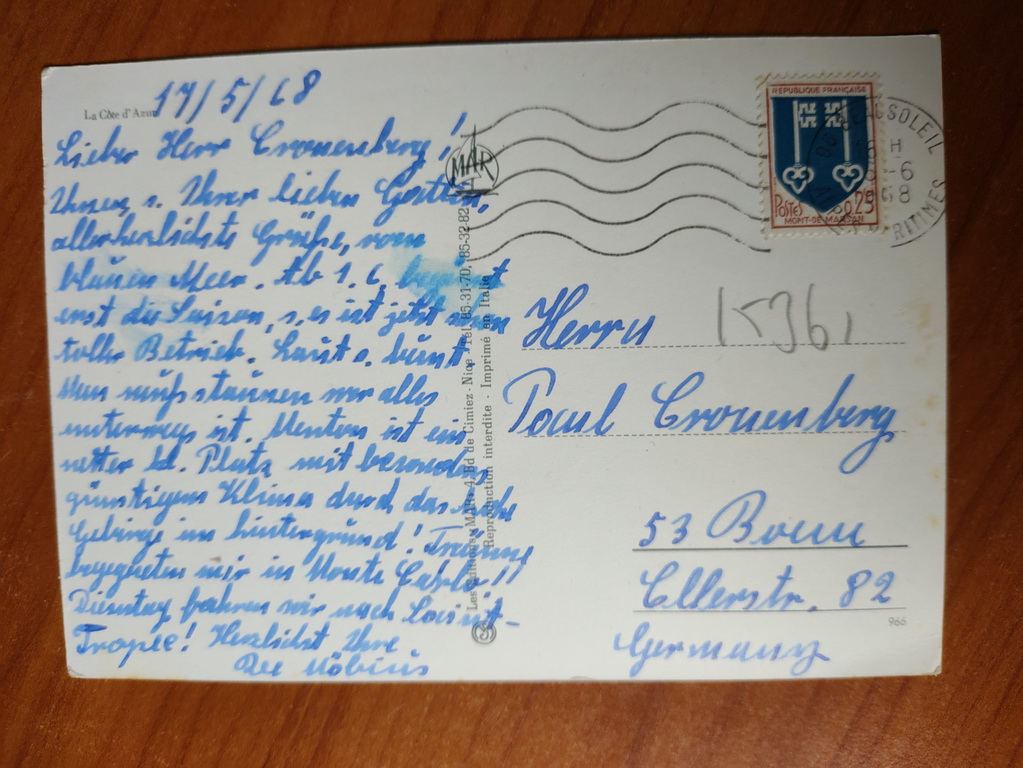 La Côte d'Azur
17/5/68
Lieber Herr Cronenberg!
Ihnen, u. Ihrer lieben Gattin,
allerherzlichste Grüße, vom
blauen Meer. Ab 1.6. beginnt
erst die Saison, u. es ist jetzt schon
toller Betrieb. Laut u. bunt.
Man muß staunen wer alles
unterwegs ist. Menton ist ein
netter kl. Platz mit besonders
günstigem Klima durch das nahe
Gebirge im Hintergrund!
begegneten wir in Monte Carlo!!
Dienstag fahren wir nach Saint-
Tropez! Herzlichst Ihre
Möbius
MAR
Les Éditions "MAR" 4, Bd de Cimiez - Nice - Tél. 85-31-70, 85-32-82
Reproduction interdite - Imprimé en Italie
REPUBLIQUE FRANÇAISE
POSTES 0,25
MONT-DE-MARSAN
SOLEIL
H
-6
1968
MARITIMES
1536,
Herrn
Paul Cronenberg
53 Bonn
Ellerstr. 82
Germany
966